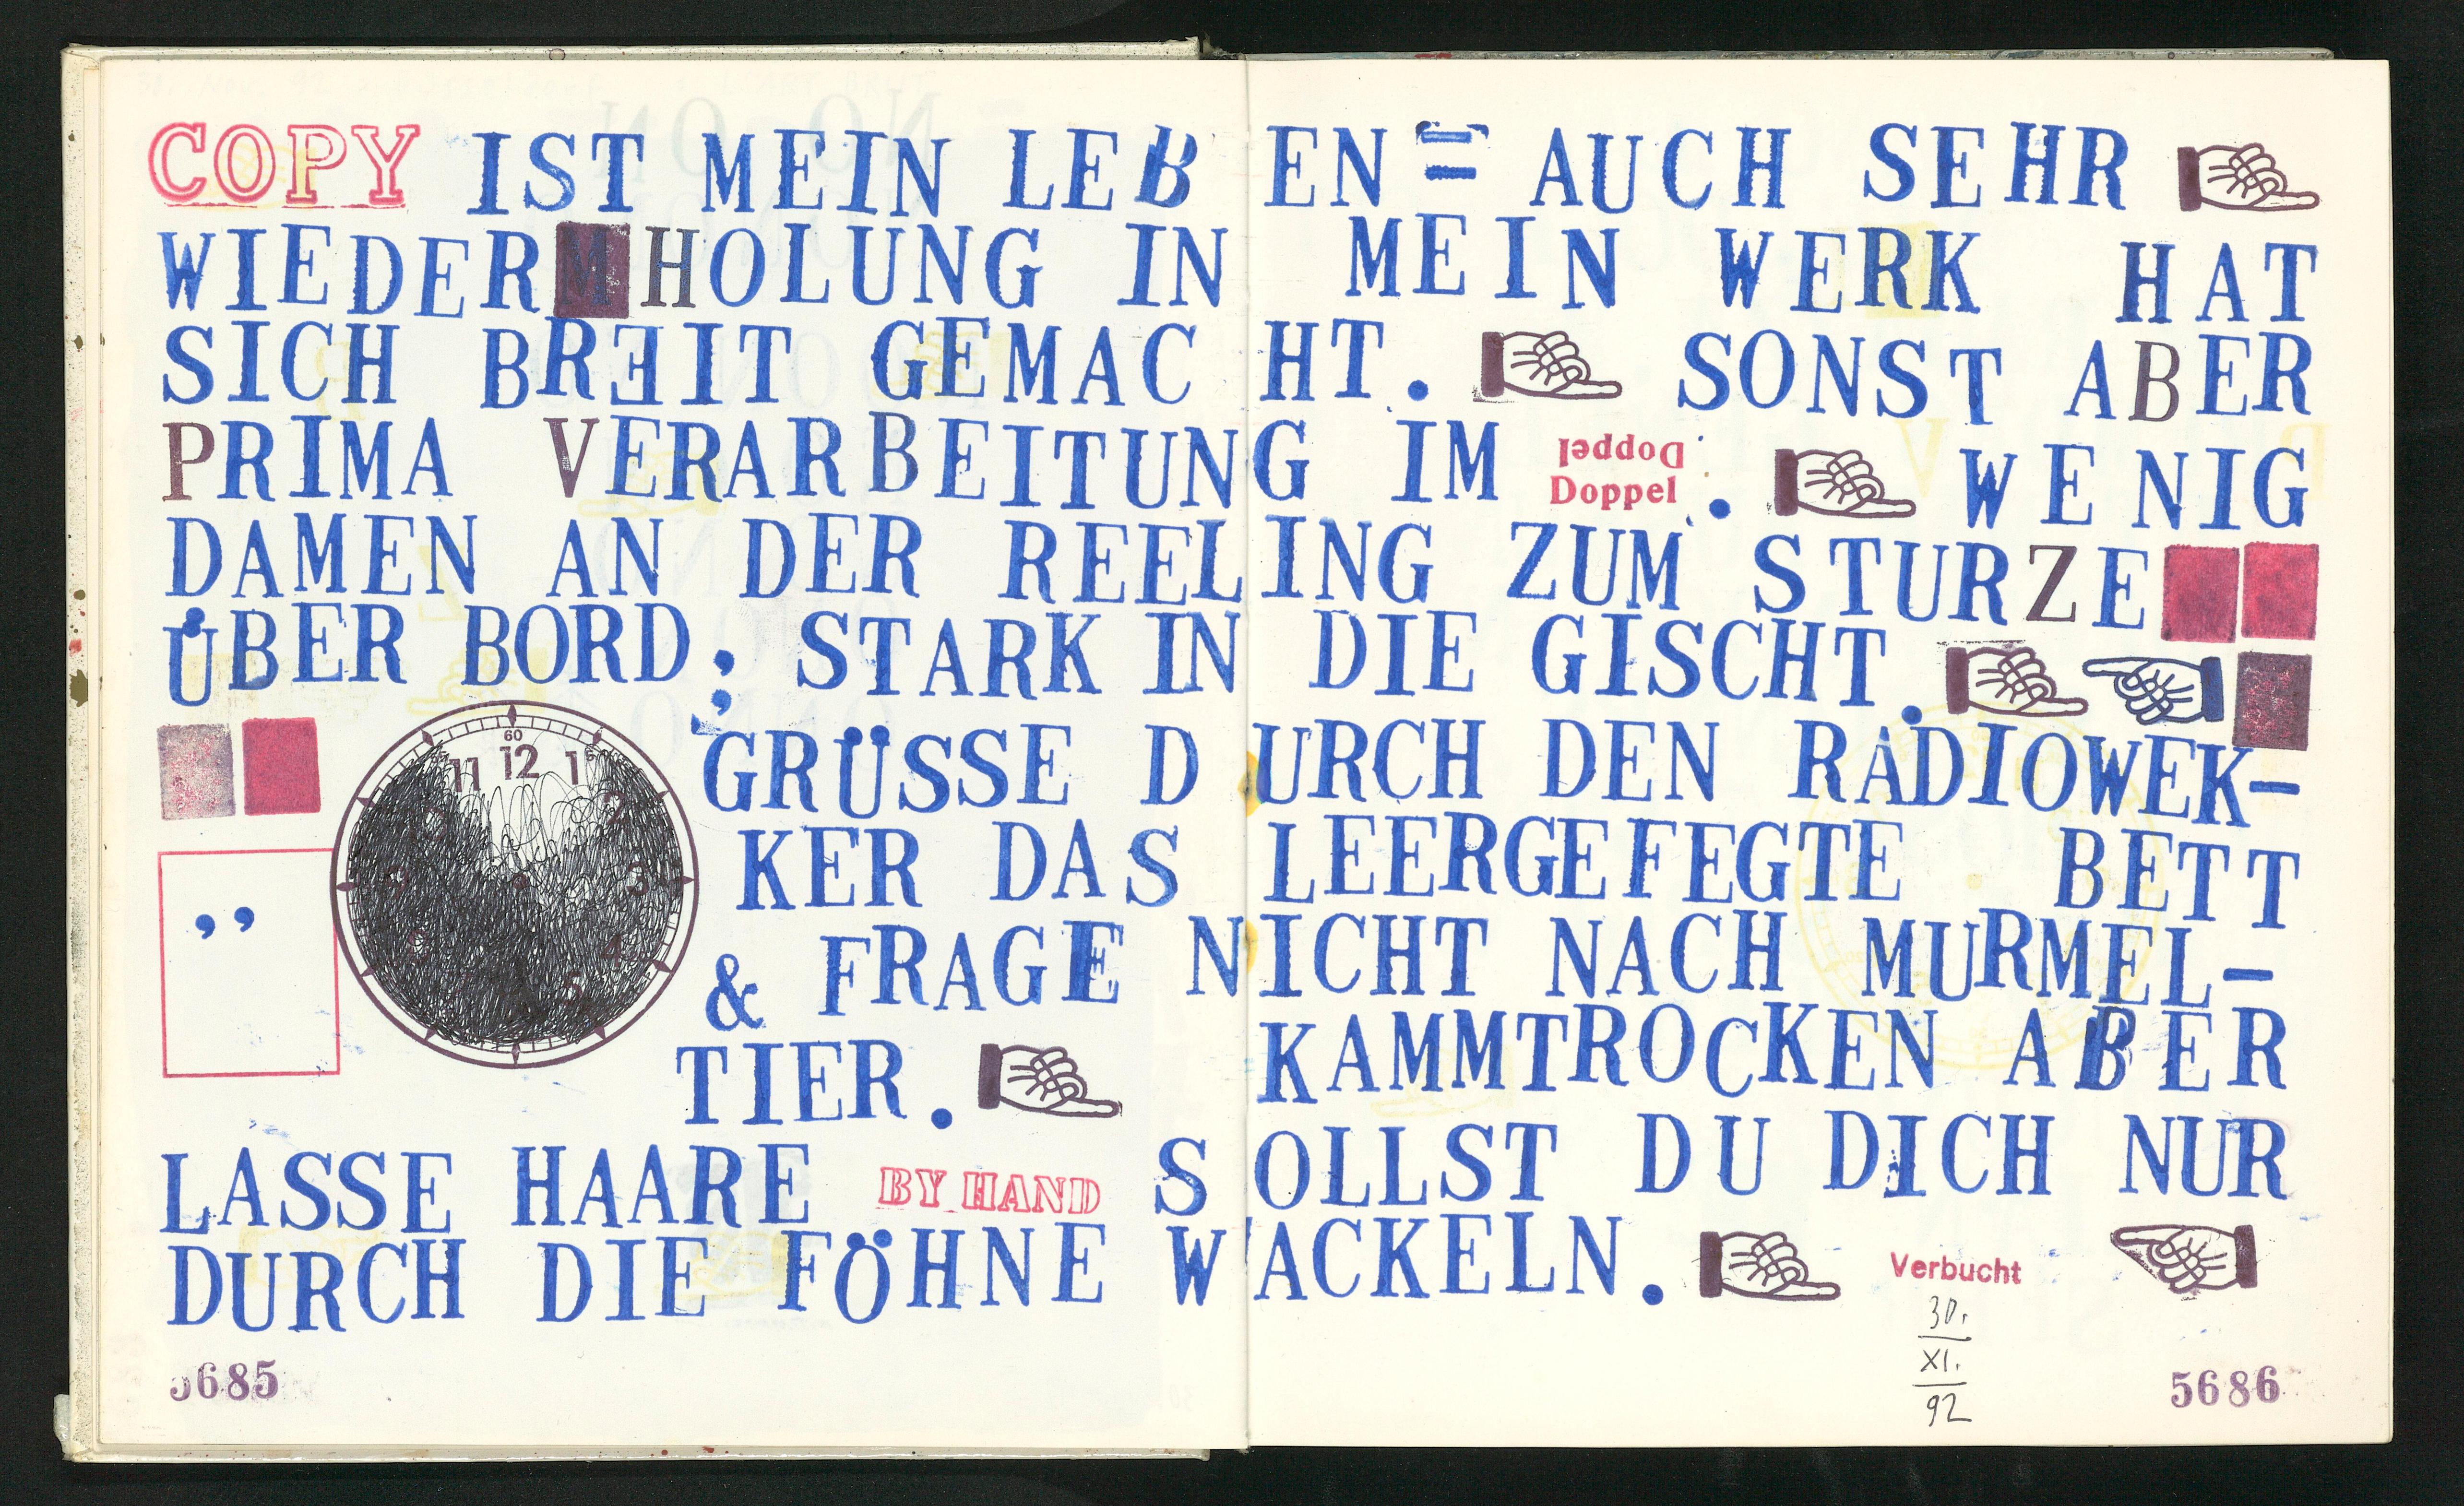 COPY IST MEIN LEBEN = AUCH SEHR
WIEDERMHOLUNG IN MEIN WERK HAT
SICH BREIT GEMACHT. SONST ABER
PRIMA VERARBEITUNG IM Doppel Doppel . WENIG
DAMEN AN DER REELING ZUM STURZE
ÜBER BORD; STARK IN DIE GISCHT.
GRÜSSE DURCH DEN RADIOWEK-
KER DAS LEERGEFEGTE BETT
& FRAGE NICHT NACH MURMEL-
TIER. KAMMTROCKEN ABER
LASSE HAARE BY HAND SOLLST DU DICH NUR
DURCH DIE FÖHNE WACKELN. Verbucht
60
11 12 1
2
3
4
5
,,
30.
XI.
92
5685 5686